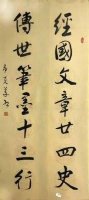 經國文章廿四史
傳世筆墨十三行